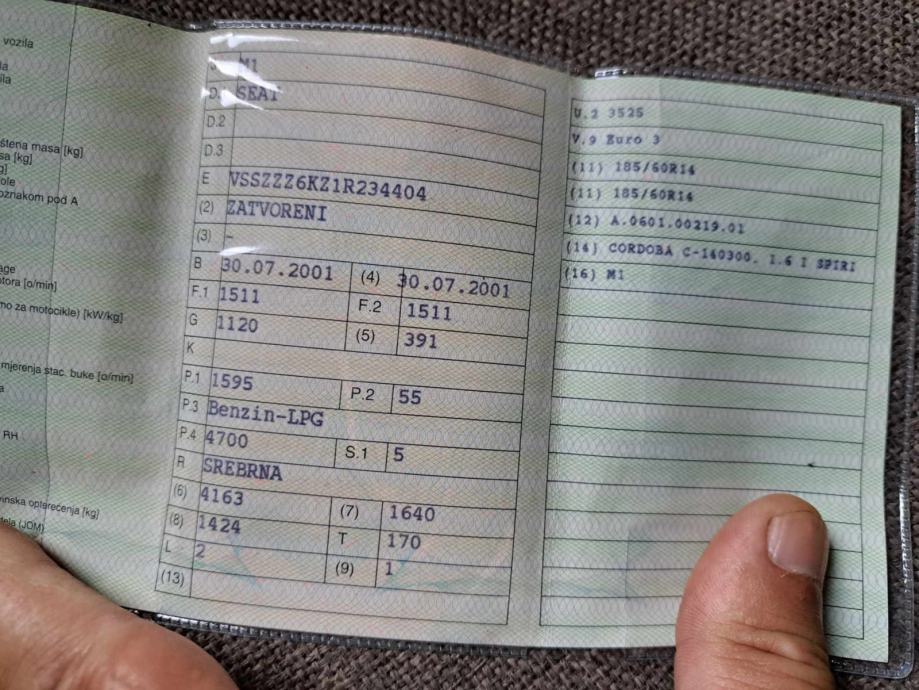 vozila
la
ila
štena masa [kg]
sa [kg]
g]
ole
oznakom pod A
age
otora [o/min]
mo za motocikle) [kW/kg]
mjerenja stac. buke [o/min]
a
RH
vinska opterećenja [kg]
dela (JOM)
J M1
D. SEAT
D.2
D.3
E VSSZZZ6KZ1R234404
(2) ZATVORENI
(3) –
B 30.07.2001 (4) 30.07.2001
F.1 1511 F.2 1511
G 1120 (5) 391
K
P.1 1595 P.2 55
P.3 Benzin-LPG
P.4 4700 S.1 5
R SREBRNA
(6) 4163 (7) 1640
(8) 1424 T 170
L 2 (9) 1
(13)
U.2 3525
V.9 Euro 3
(11) 185/60R14
(11) 185/60R14
(12) A.0601.00219.01
(14) CORDOBA C-140300, 1.6 I SPIRI
(16) M1